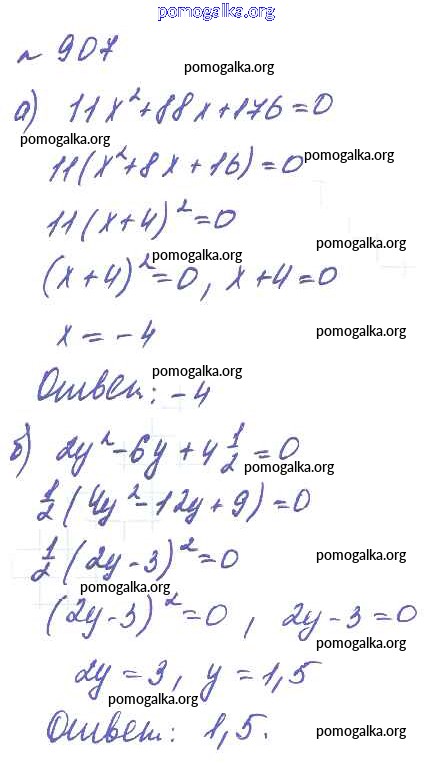 pomogalka.org
№ 907
pomogalka.org
а) 11x²+88x+176=0
pomogalka.org
11(x²+8x+16)=0 pomogalka.org
11(x+4)²=0
pomogalka.org
pomogalka.org
(x+4)²=0, x+4=0
x=-4 pomogalka.org
pomogalka.org
Ответ: -4
б) 2y²-6y+4 1/2=0
pomogalka.org
1/2(4y²-12y+9)=0
1/2(2y-3)²=0 pomogalka.org
pomogalka.org
(2y-3)²=0, 2y-3=0
pomogalka.org
2y=3, y=1,5
pomogalka.org
Ответ: 1,5. pomogalka.org